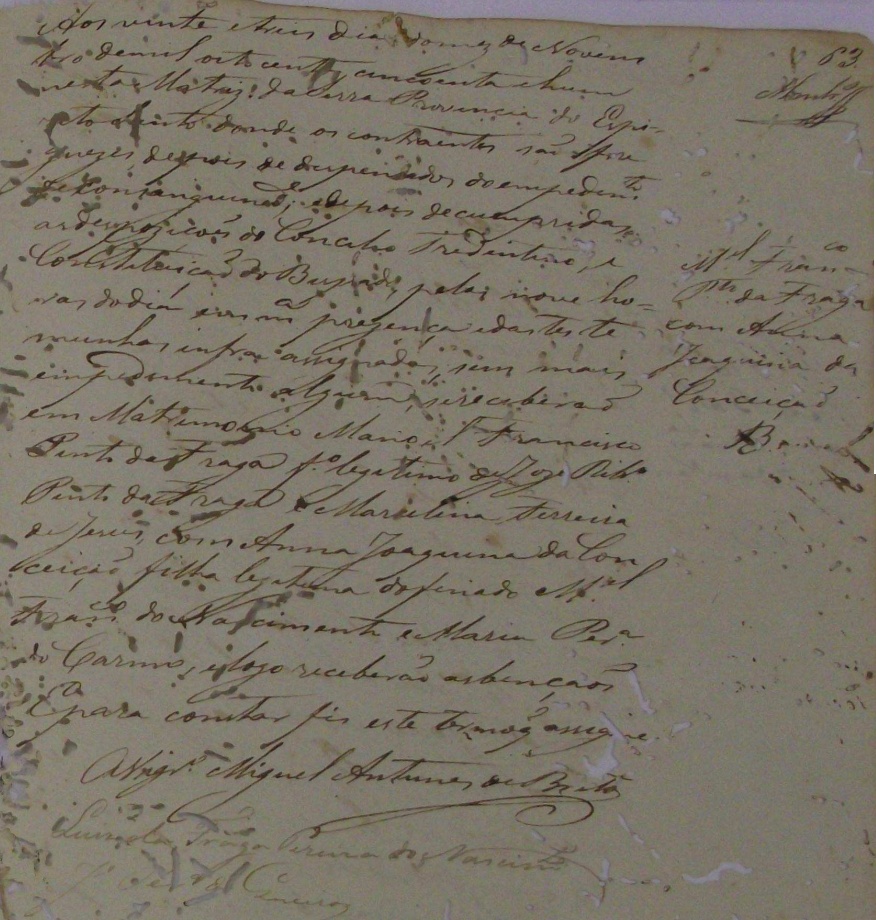 63
Aos vinte e tres dias do mez de Novem
bro de mil oito centos cincoenta e hum
nesta Matriz da Serra Provincia do Espi-
rito Santo donde os contraentes são Fre
guezes depois de dispensados do empedimto
de consanguined.e, e depois de cumpridas
as despozicoẽs do Concilio Tredentino, e
Constituição do Bispado, pelas nove ho=
ras do dia em mª prezença, e das teste
munhas infra assignadas, sem mais
empedimento algum, se receberaõ
em Matrimonio Manoel Francisco
Pinto da Fraga f.º legitimo de Joze Ribr.º
Pinto da Fraga e Marcelina Ferreira
de Jesus, com Anna Joaquina da Con
ceição filha legitima do finado M.el
Fran.co do Nascimento e Maria Per.ª
do Carmo, e logo receberão as bençaõs
E para constar fis este termo q̃ assignei.
O Vigr.º Miguel Antunes de Brito
Luis da Fraga Pereira do Nascim.to
M.el Fran.co
Pto da Fraga
com Anna
Joaquina da
Conceição